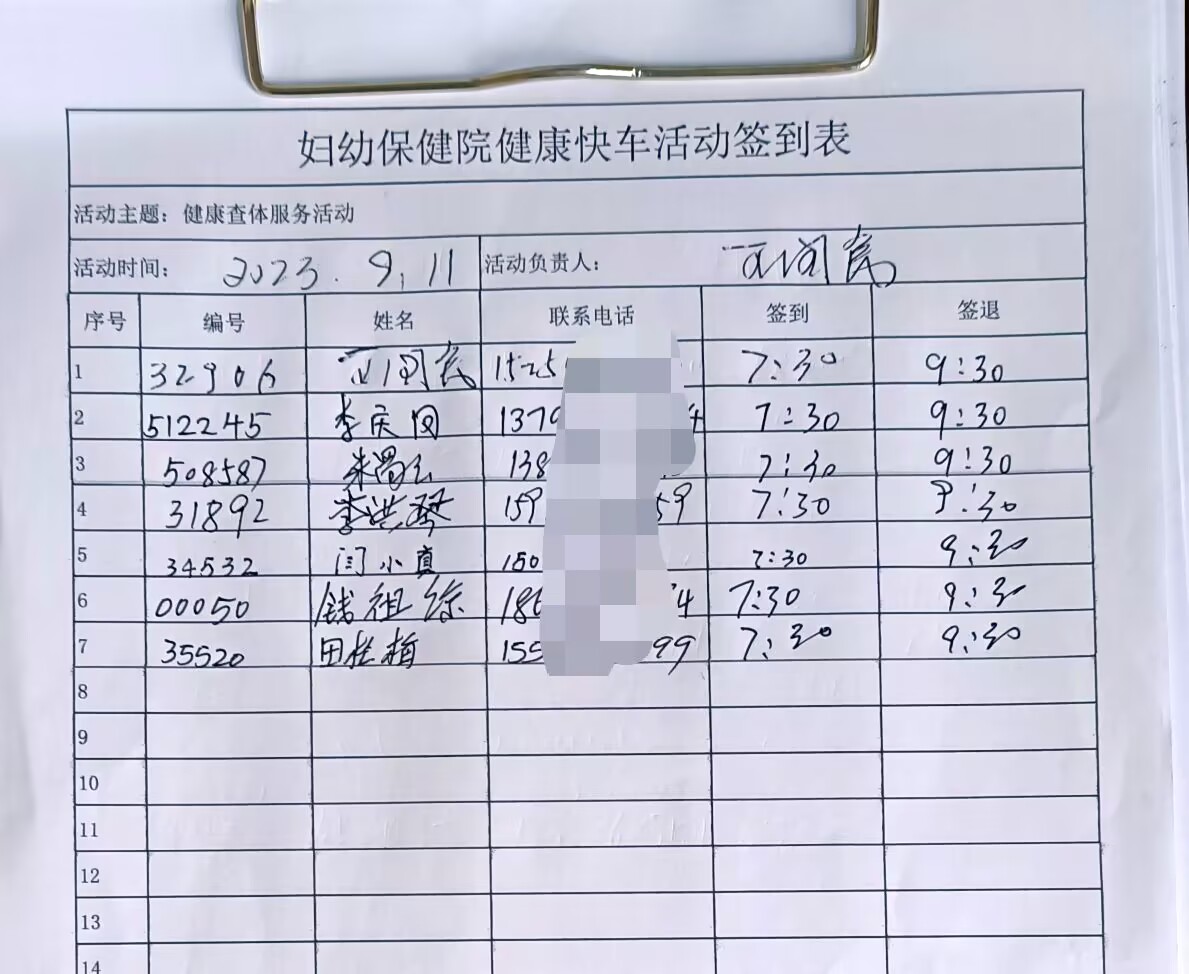 妇幼保健院健康快车活动签到表
活动主题：健康查体服务活动
活动时间： 2023.9.11 活动负责人：
序号 编号 姓名 联系电话 签到 签退
1 32906 1525 7:30 9:30
2 512245 李庆 1379 4 7:30 9:30
3 508587 朱 138 7:30 9:30
4 31892 李洪琴 159 59 7:30 9:30
5 34532 闫小真 150 7:30 9:30
6 00050 钱祖 186 4 7:30 9:30
7 35520 田桂梅 155 99 7:30 9:30
8
9
10
11
12
13
14